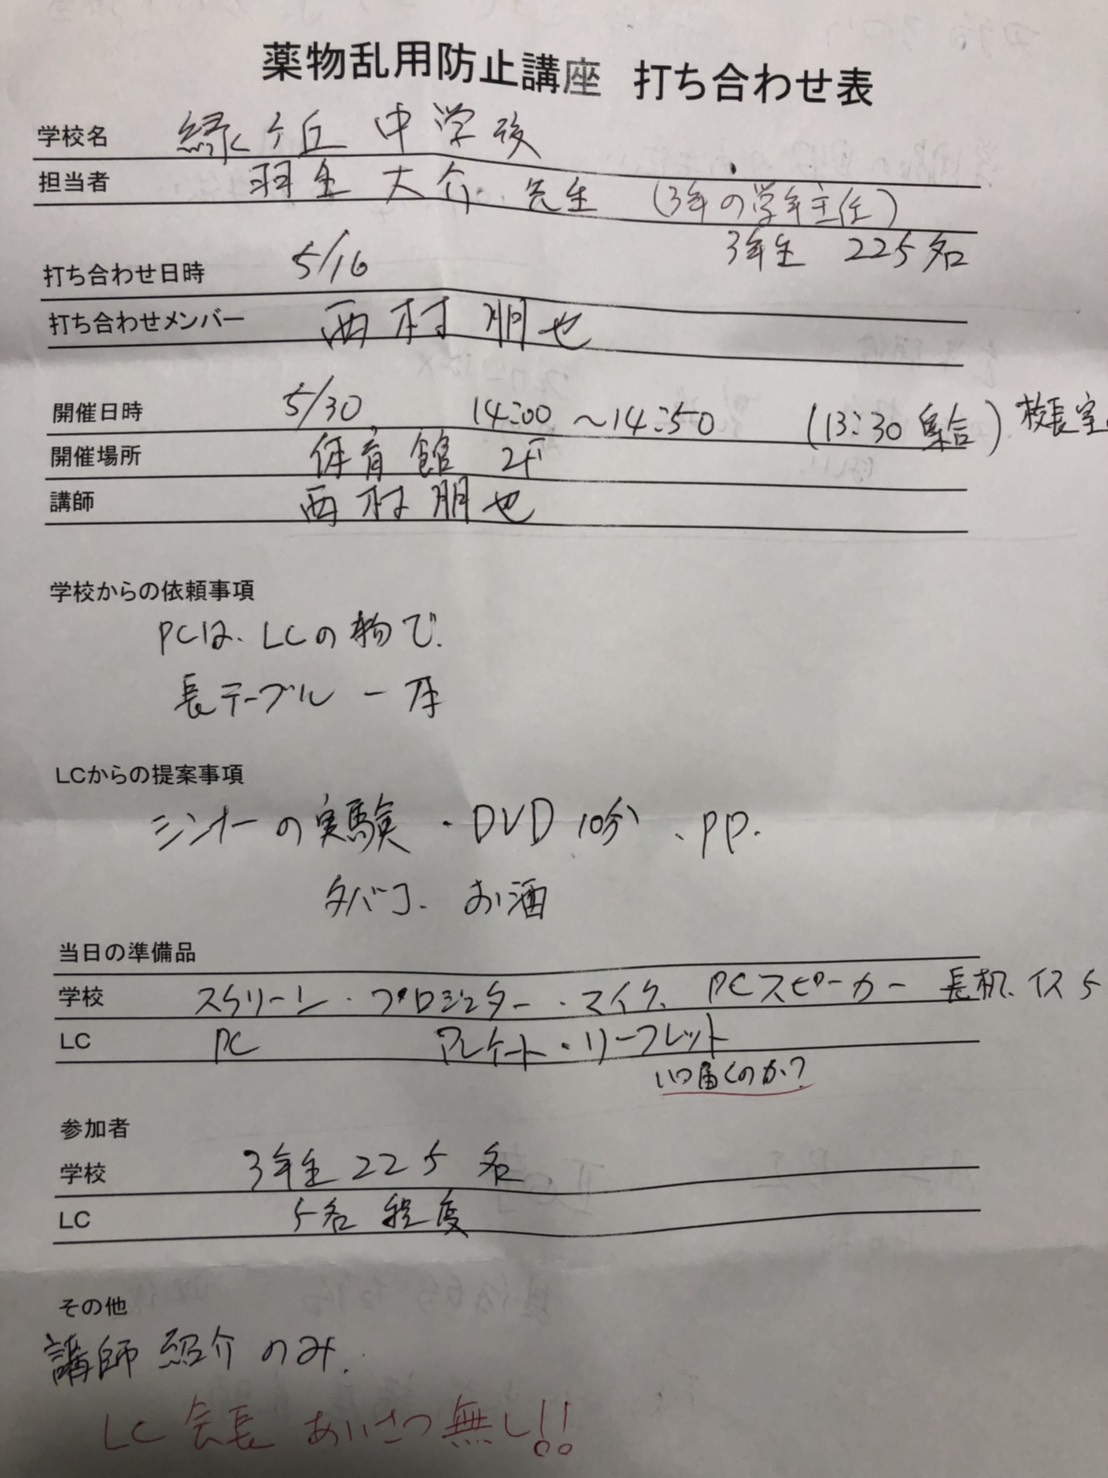 薬物乱用防止講座 打ち合わせ表
学校名 緑ヶ丘 中学校
担当者 羽生 大介 先生 (3年の学年主任)
3年生 225名
打ち合わせ日時 5/16
打ち合わせメンバー 西村 朋也
開催日時 5/30 14:00 ~14:50 (13:30 集合) 校長室
開催場所 体育館 2F
講師 西村 朋也
学校からの依頼事項
PCは、LCの物で.
長テーブル 一本
LCからの提案事項
シンナーの実験・DVD 10分、PP.
タバコ、お酒
当日の準備品
学校 スクリーン・プロジェクター・マイク、PCスピーカー 長机、イス5
LC PC プレゼント・リーフレット
いつ届くのか?
参加者
学校 3年生 225名
LC 5名 程度
その他
講師 紹介 のみ.
LC 会長 あいさつ 無し!!